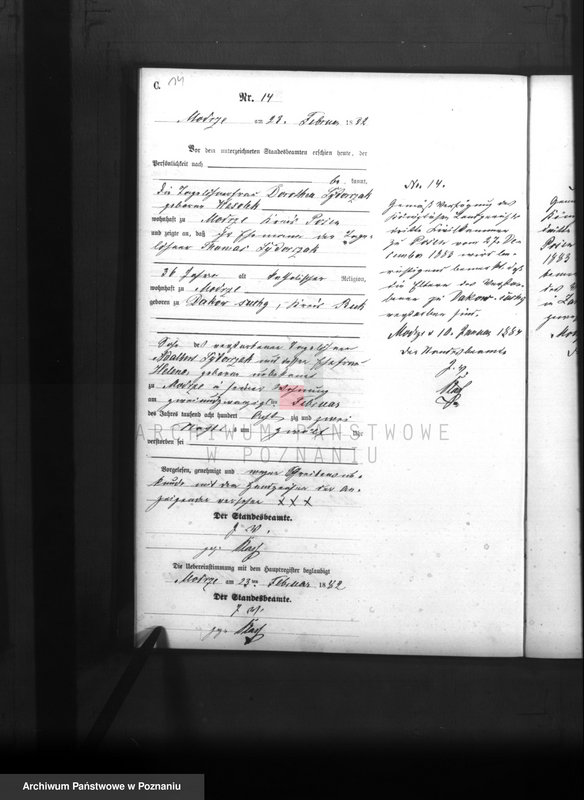 C. 14
Nr. 14
Modrze am 23. Februar 1882
Vor dem unterzeichneten Standesbeamten erschien heute, der
Persönlichkeit nach
be kannt,
die Tagelöhnerfrau Dorothea Sydorzak
geborene
wohnhaft zu Modrze Kreis Posen
und zeigte an, daß Ihr Ehemann der Tage-
löhner Thomas Sydorzak
36 Jahre alt katholischer Religion,
wohnhaft zu Modrze
geboren zu Dakow suchy, Kreis Buk
Sohn des verstorbenen Tagelöhner
Sydorzak und dessen Ehefrau
Helena, geborene unbekannt
zu Modrze in seiner Wohnung
am zweiundzwanzigsten Februar
des Jahres tausend acht hundert acht zig und zwei
Nachts um zwölf Uhr
verstorben sei
Vorgelesen, genehmigt und wegen Schreibensun-
kunde mit den Handzeichen der An-
zeigenden versehen XXX
Der Standesbeamte.
J. V.
gez.
Die Uebereinstimmung mit dem Hauptregister beglaubigt
Modrze am 23ten Februar 1882
Der Standesbeamte.
J. V.
gez.
No. 14.
Gemäß Verfügung des
Königlichen Landgerichts
dritte Civilkammer
zu Posen vom 27. De-
cember 1883 wird be-
richtigend bemerkt, daß
die Eltern des Verstor-
benen zu Dakow suchy
verstorben sind.
Modrze d 10. Januar 1884
Der Standesbeamte
J. V.
ARCHIWUM PAŃSTWOWE
W POZNANIU
Archiwum Państwowe w Poznaniu